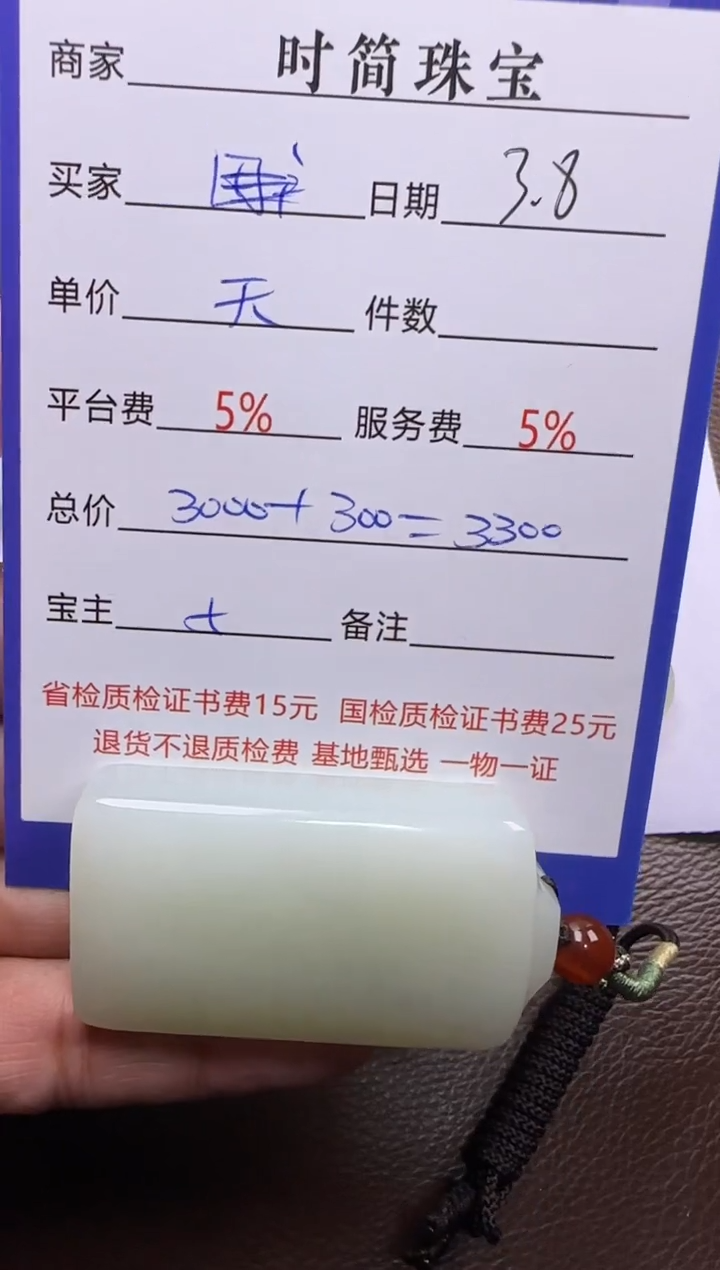 商家 时简珠宝
买家 日期 3.8
单价 天 件数
平台费 5% 服务费 5%
总价 3000+300=3300
宝主 备注
省检质检证书费15元 国检质检证书费25元
退货不退质检费 基地甄选 一物一证